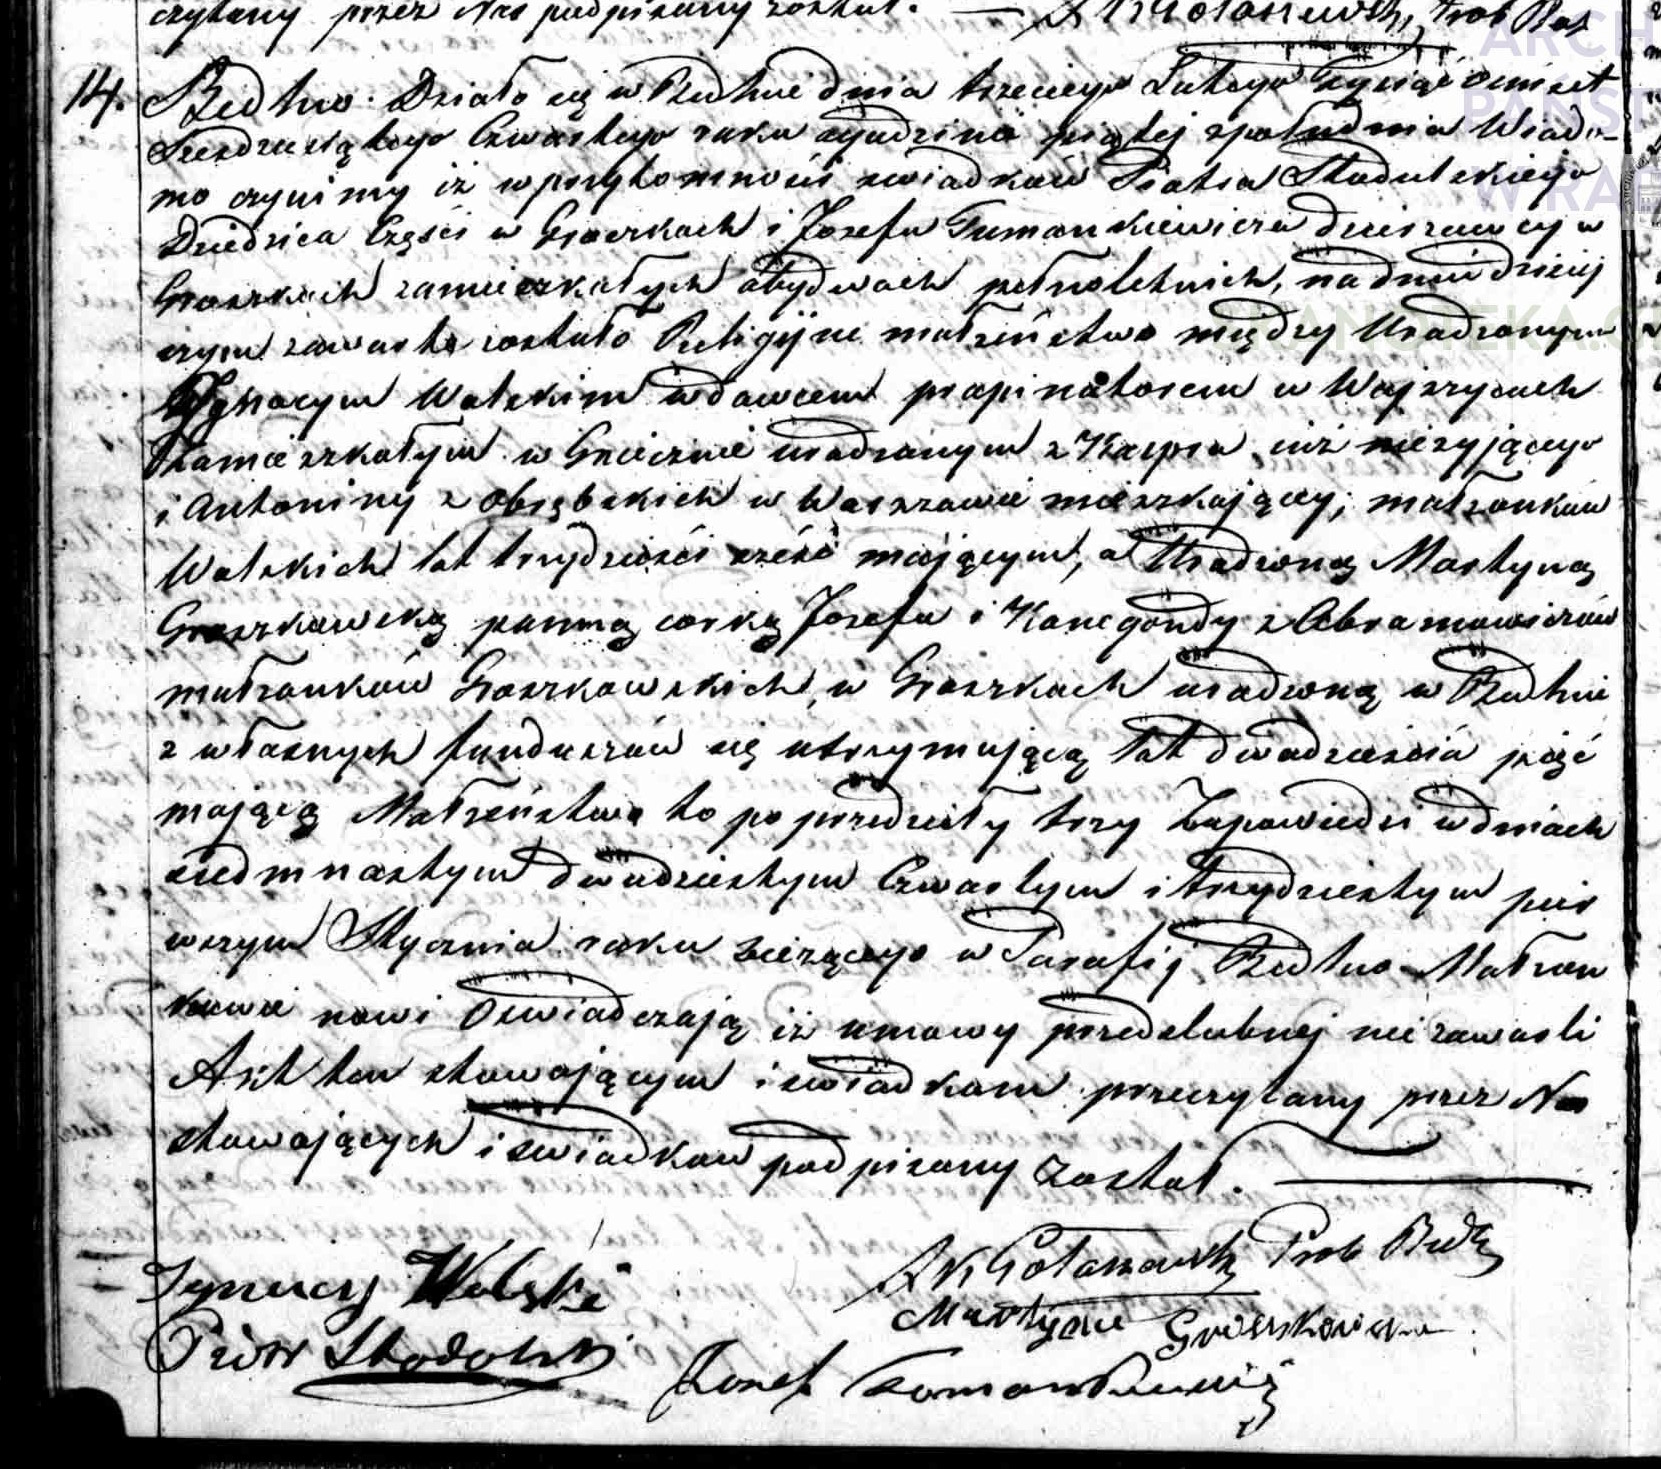 czytany przez Nas podpisany został. —
14. Bedlno. Działo się w Bedlnie dnia trzeciego Lutego Tysiąc ośmset
Sześdziesiątego Czwartego roku o godzinie piątej z południa Wiado-
mo czynimy iż w przytomności świadków Piotra
Dziedzica Części w Groszkach i Józefa Tumankiewicza dzierzawcy w
Groszkach zamieszkałych obydwóch pełnoletnich, na dniu dzisiej
szym zawarte zostało Religijne małżeństwo między Urodzonym
Ignacym Wolskim wdowcem propinatorem w
Zamieszkałym w Gnieznie urodzonym z Kacpra już nieżyjącego
i Antoniny z Obrębskich w Warszawie mieszkającej, małżonków
Wolskich lat trzydzieści sześć mającym, a Urodzoną Martyną
Groszkowską panną corką Jozefa i Kunegondy z Abramowiczów
małżonków Groszkowskich, w Groszkach urodzoną w Bedlnie
z własnych funduszów się utrzymującą lat dwadzieścia pięć
mającą Małżeństwo to poprzedziły trzy Zapowiedzi w dniach
siedmnastym dwudziestym Czwartym i trzydziestym pier
wszym Stycznia roku bieżącego w Parafij Bedlno Małżon
kowie nowi Oświadczają iż umowy przedślubnej nie zawarli
Akt ten stawającym i świadkom przeczytany przez Nas
stawających i świadków podpisany został. —
Prob Bedl
Ignacy Wolski
Martyna Groszkowska
Piotr
Józef